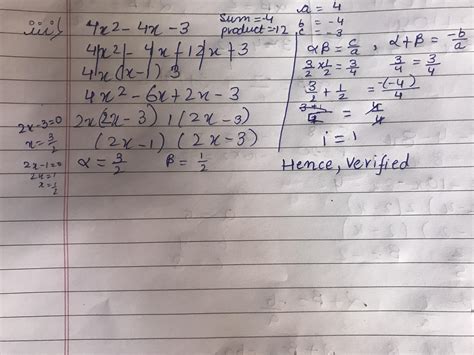 iii) 4x2 - 4x - 3
Sum = -4
product = 12
4x2 - 4x + 12x + 3
4x (x-1) 3
4x2 - 6x + 2x - 3
2x (2x - 3) 1 (2x - 3)
(2x - 1) (2x - 3)
α = 3/2 β = 1/2
2x-3=0
x = 3/2
2x-1=0
2x=1
x=1/2
a = 4
b = -4
c = -3
αβ = c/a , α+β = -b/a
3/2 x 1/2 = 3/4 3/4 = 3/4
3/2 + 1/2 = -(-4)/4
4/4
i = 1
Hence, Verified